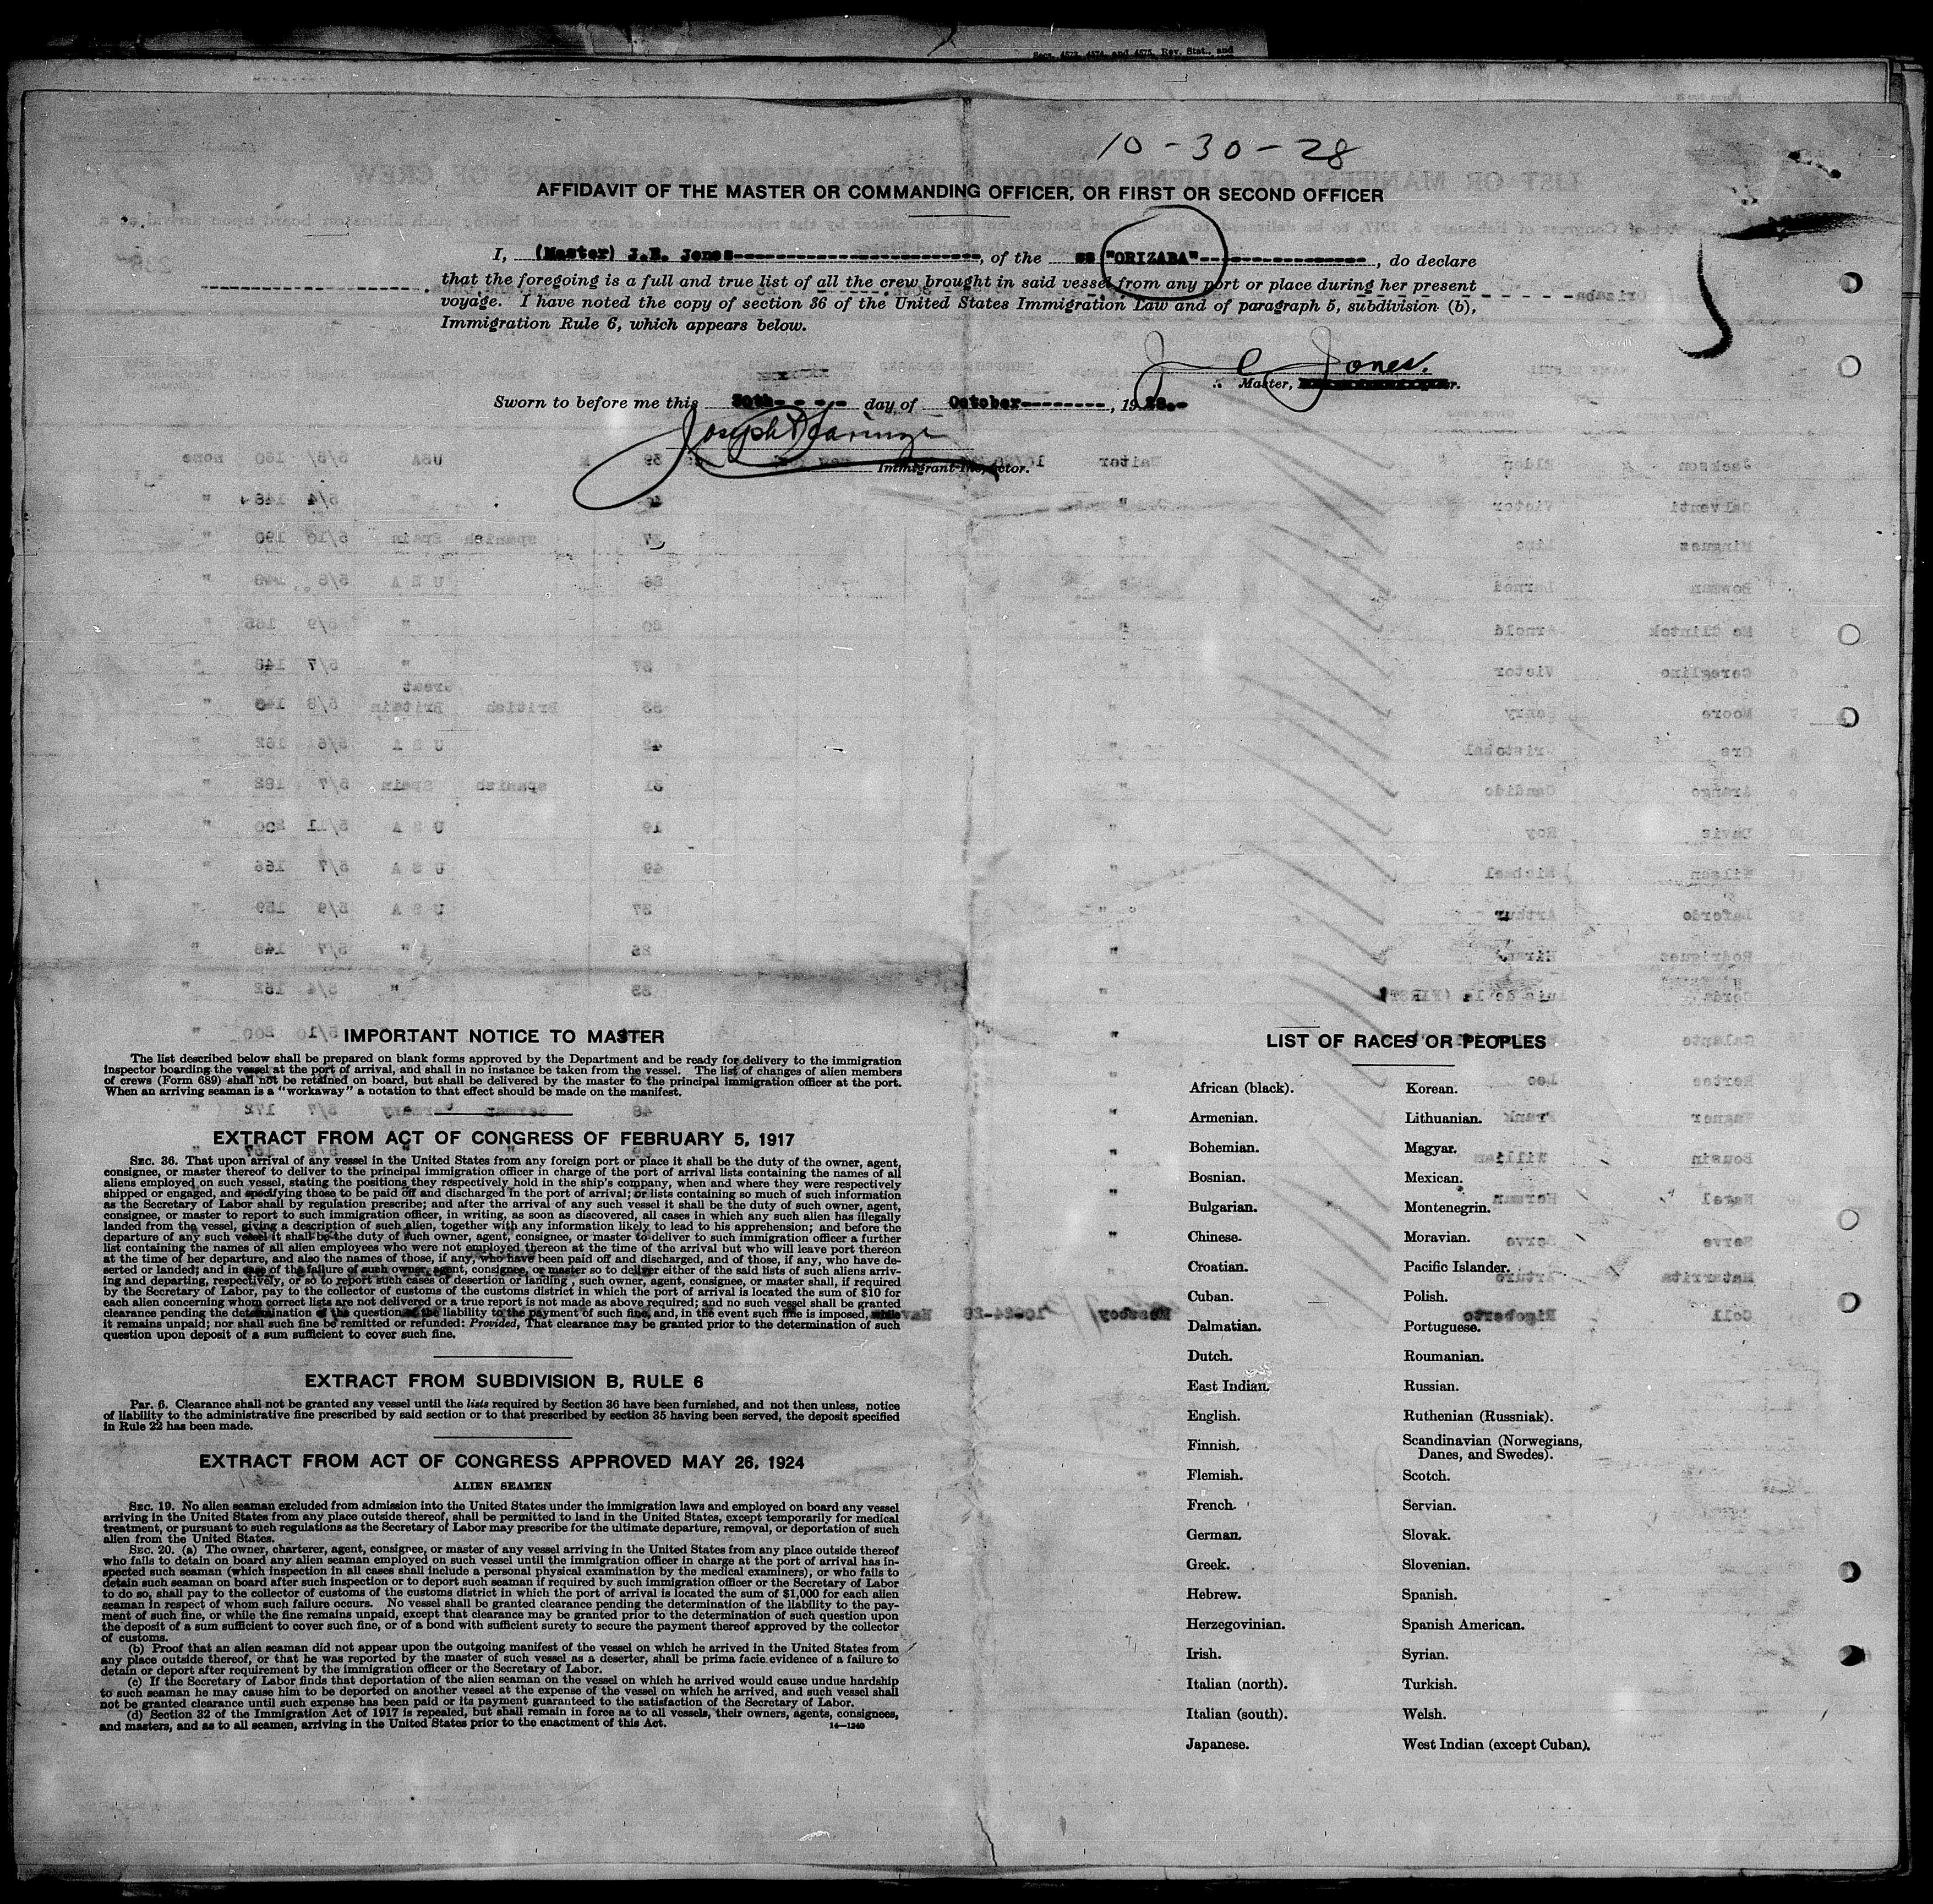 Secs. 4573, 4574, and 4575, Rev. Stat., and
10-30-28
AFFIDAVIT OF THE MASTER OR COMMANDING OFFICER, OR FIRST OR SECOND OFFICER
I, (Master) J.E. Jones, of the ss "ORIZABA", do declare
that the foregoing is a full and true list of all the crew brought in said vessel from any port or place during her present
voyage. I have noted the copy of section 36 of the United States Immigration Law and of paragraph 5, subdivision (b),
Immigration Rule 6, which appears below.
J E Jones.
Master,
Sworn to before me this 30th day of October, 1928.
Joseph
Immigrant Inspector.
IMPORTANT NOTICE TO MASTER
The list described below shall be prepared on blank forms approved by the Department and be ready for delivery to the immigration
inspector boarding the vessel at the port of arrival, and shall in no instance be taken from the vessel. The list of changes of alien members
of crews (Form 689) shall not be retained on board, but shall be delivered by the master to the principal immigration officer at the port.
When an arriving seaman is a "workaway" a notation to that effect should be made on the manifest.
EXTRACT FROM ACT OF CONGRESS OF FEBRUARY 5, 1917
SEC. 36. That upon arrival of any vessel in the United States from any foreign port or place it shall be the duty of the owner, agent,
consignee, or master thereof to deliver to the principal immigration officer in charge of the port of arrival lists containing the names of all
aliens employed on such vessel, stating the positions they respectively hold in the ship's company, when and where they were respectively
shipped or engaged, and specifying those to be paid off and discharged in the port of arrival; or lists containing so much of such information
as the Secretary of Labor shall by regulation prescribe; and after the arrival of any such vessel it shall be the duty of such owner, agent,
consignee, or master to report to such immigration officer, in writing, as soon as discovered, all cases in which any such alien has illegally
landed from the vessel, giving a description of such alien, together with any information likely to lead to his apprehension; and before the
departure of any such vessel it shall be the duty of such owner, agent, consignee, or master to deliver to such immigration officer a further
list containing the names of all alien employees who were not employed thereon at the time of the arrival but who will leave port thereon
at the time of her departure, and also the names of those, if any, who have been paid off and discharged, and of those, if any, who have de-
serted or landed; and in case of the failure of such owner, agent, consignee, or master so to deliver either of the said lists of such aliens arriv-
ing and departing, respectively, or so to report such cases of desertion or landing, such owner, agent, consignee, or master shall, if required
by the Secretary of Labor, pay to the collector of customs of the customs district in which the port of arrival is located the sum of $10 for
each alien concerning whom correct lists are not delivered or a true report is not made as above required; and no such vessel shall be granted
clearance pending the determination of the question of the liability to the payment of such fine, and, in the event such fine is imposed, while
it remains unpaid; nor shall such fine be remitted or refunded: Provided, That clearance may be granted prior to the determination of such
question upon deposit of a sum sufficient to cover such fine.
EXTRACT FROM SUBDIVISION B, RULE 6
Par. 6. Clearance shall not be granted any vessel until the lists required by Section 36 have been furnished, and not then unless, notice
of liability to the administrative fine prescribed by said section or to that prescribed by section 35 having been served, the deposit specified
in Rule 22 has been made.
EXTRACT FROM ACT OF CONGRESS APPROVED MAY 26, 1924
ALIEN SEAMEN
SEC. 19. No alien seaman excluded from admission into the United States under the immigration laws and employed on board any vessel
arriving in the United States from any place outside thereof, shall be permitted to land in the United States, except temporarily for medical
treatment, or pursuant to such regulations as the Secretary of Labor may prescribe for the ultimate departure, removal, or deportation of such
alien from the United States.
SEC. 20. (a) The owner, charterer, agent, consignee, or master of any vessel arriving in the United States from any place outside thereof
who fails to detain on board any alien seaman employed on such vessel until the immigration officer in charge at the port of arrival has in-
spected such seaman (which inspection in all cases shall include a personal physical examination by the medical examiners), or who fails to
detain such seaman on board after such inspection or to deport such seaman if required by such immigration officer or the Secretary of Labor
to do so, shall pay to the collector of customs of the customs district in which the port of arrival is located the sum of $1,000 for each alien
seaman in respect of whom such failure occurs. No vessel shall be granted clearance pending the determination of the liability to the pay-
ment of such fine, or while the fine remains unpaid, except that clearance may be granted prior to the determination of such question upon
the deposit of a sum sufficient to cover such fine, or of a bond with sufficient surety to secure the payment thereof approved by the collector
of customs.
(b) Proof that an alien seaman did not appear upon the outgoing manifest of the vessel on which he arrived in the United States from
any place outside thereof, or that he was reported by the master of such vessel as a deserter, shall be prima facie evidence of a failure to
detain or deport after requirement by the immigration officer or the Secretary of Labor.
(c) If the Secretary of Labor finds that deportation of the alien seaman on the vessel on which he arrived would cause undue hardship
to such seaman he may cause him to be deported on another vessel at the expense of the vessel on which he arrived, and such vessel shall
not be granted clearance until such expense has been paid or its payment guaranteed to the satisfaction of the Secretary of Labor.
(d) Section 32 of the Immigration Act of 1917 is repealed, but shall remain in force as to all vessels, their owners, agents, consignees,
and masters, and as to all seamen, arriving in the United States prior to the enactment of this Act.
14—1240
LIST OF RACES OR PEOPLES
African (black).
Armenian.
Bohemian.
Bosnian.
Bulgarian.
Chinese.
Croatian.
Cuban.
Dalmatian.
Dutch.
East Indian.
English.
Finnish.
Flemish.
French.
German.
Greek.
Hebrew.
Herzegovinian.
Irish.
Italian (north).
Italian (south).
Japanese.
Korean.
Lithuanian.
Magyar.
Mexican.
Montenegrin.
Moravian.
Pacific Islander.
Polish.
Portuguese.
Roumanian.
Russian.
Ruthenian (Russniak).
Scandinavian (Norwegians,
Danes, and Swedes).
Scotch.
Servian.
Slovak.
Slovenian.
Spanish.
Spanish American.
Syrian.
Turkish.
Welsh.
West Indian (except Cuban).